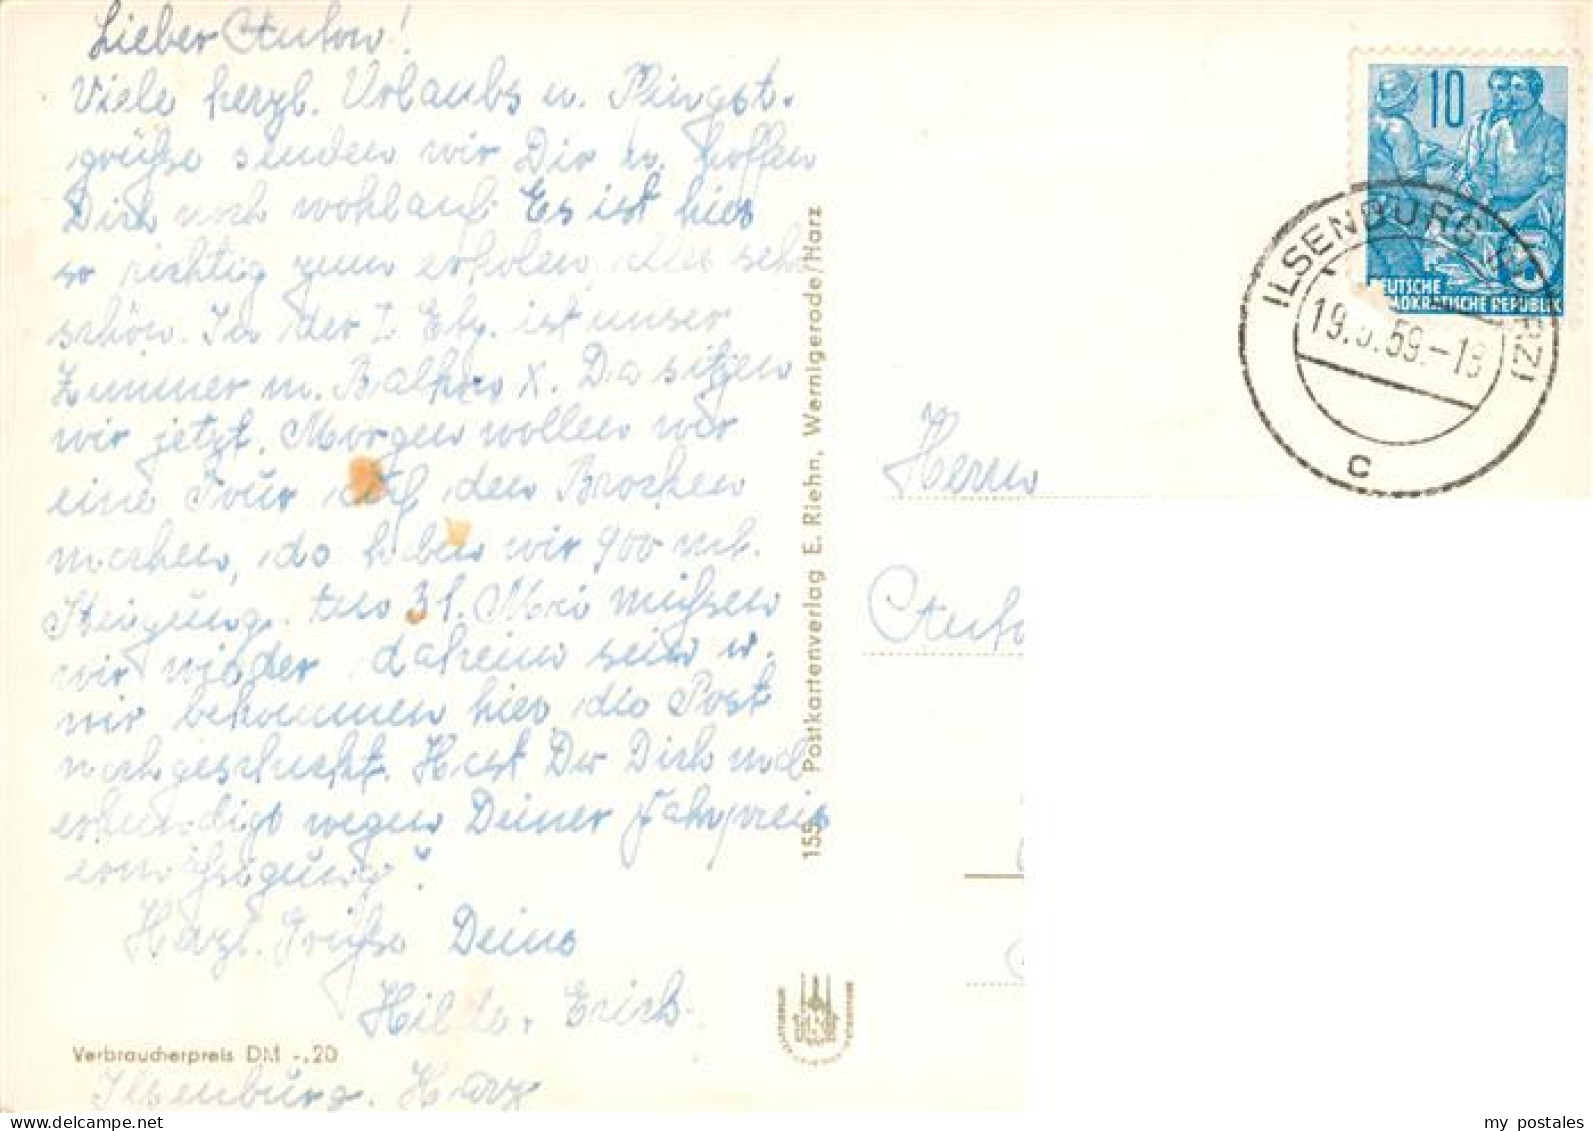 Lieber Anton!
Viele herzl. Urlaubs u. Pfingst-
grüße senden wir Dir u. hoffen
Dich noch wohlauf. Es ist hier
so richtig zum erholen, alles sehr
schön. In der I. Etg. ist unser
Zimmer m. Balkon X. Da sitzen
wir jetzt. Morgen wollen wir
eine Tour auf den Brocken
machen, da haben wir 900 mtr.
Steigung. Am 31. Mai müssen
wir wieder daheim sein u.
wir bekommen hier die Post
nachgeschickt. Hast Du Dich mal
erkundigt wegen Deiner Fahrpreis
ermäßigung?
Herzl. Grüße Deine
Hilde, Erich.
Ilsenburg. Harz
Verbraucherpreis DM -.20
155 · Postkartenverlag E. Riehn, Wernigerode/Harz
10
5
DEUTSCHE
DEMOKRATISCHE REPUBLIK
ILSENBURG
19.5.59.-18
c
Herrn
Anto
my postales